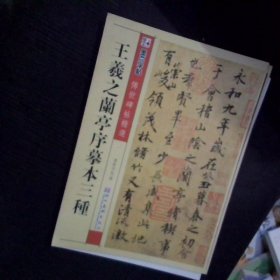 墨点字帖
傳世碑帖精選
王羲之蘭亭序摹本三種
永和九年歲在癸丑暮春之初
于會稽山陰之蘭亭脩稧事
也羣賢畢至少長咸集此地
有崇山峻領茂林脩竹又有清流激